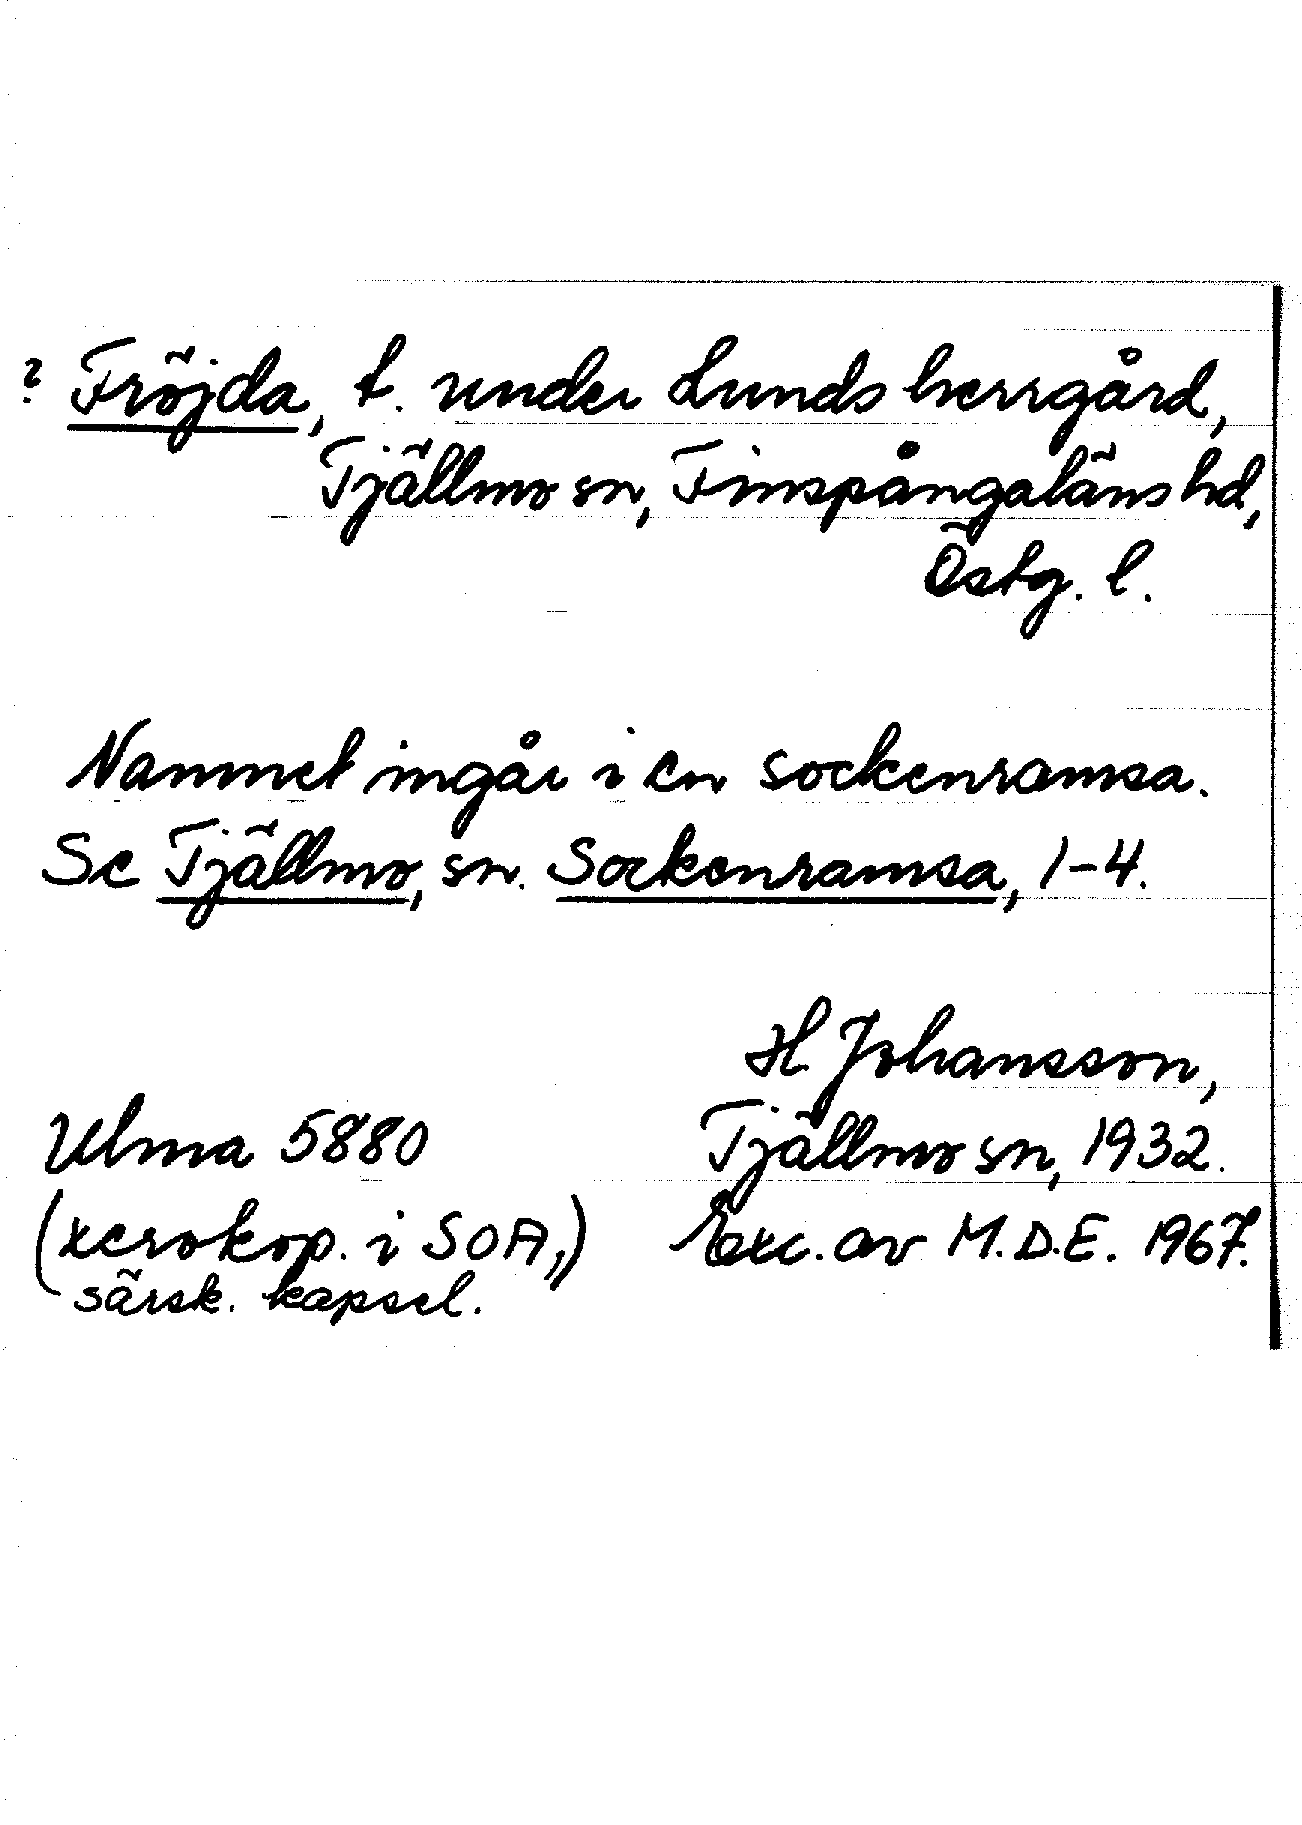 ? Fröjda, t. under Lunds herrgård,
Tjällmo sn, Finspångaläns hd,
Östg. l.
Namnet ingår i en sockenramsa.
Se Tjällmo, sn. Sockenramsa, 1-4.
H Johansson,
Ulma 5880 Tjällmo sn, 1932.
(xerokop. i SOA,) Exc. av M.D.E. 1967.
särsk. kapsel.